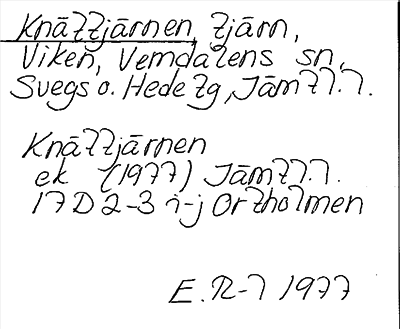 Knälltjärnen, tjärn,
Viken, Vemdalens sn,
Svegs o. Hede tg, Jämtl. l.
Knälltjärnen
ek (1977) Jämtl. l.
17D 2-3 i-j Ortholmen
E. R-l 1977